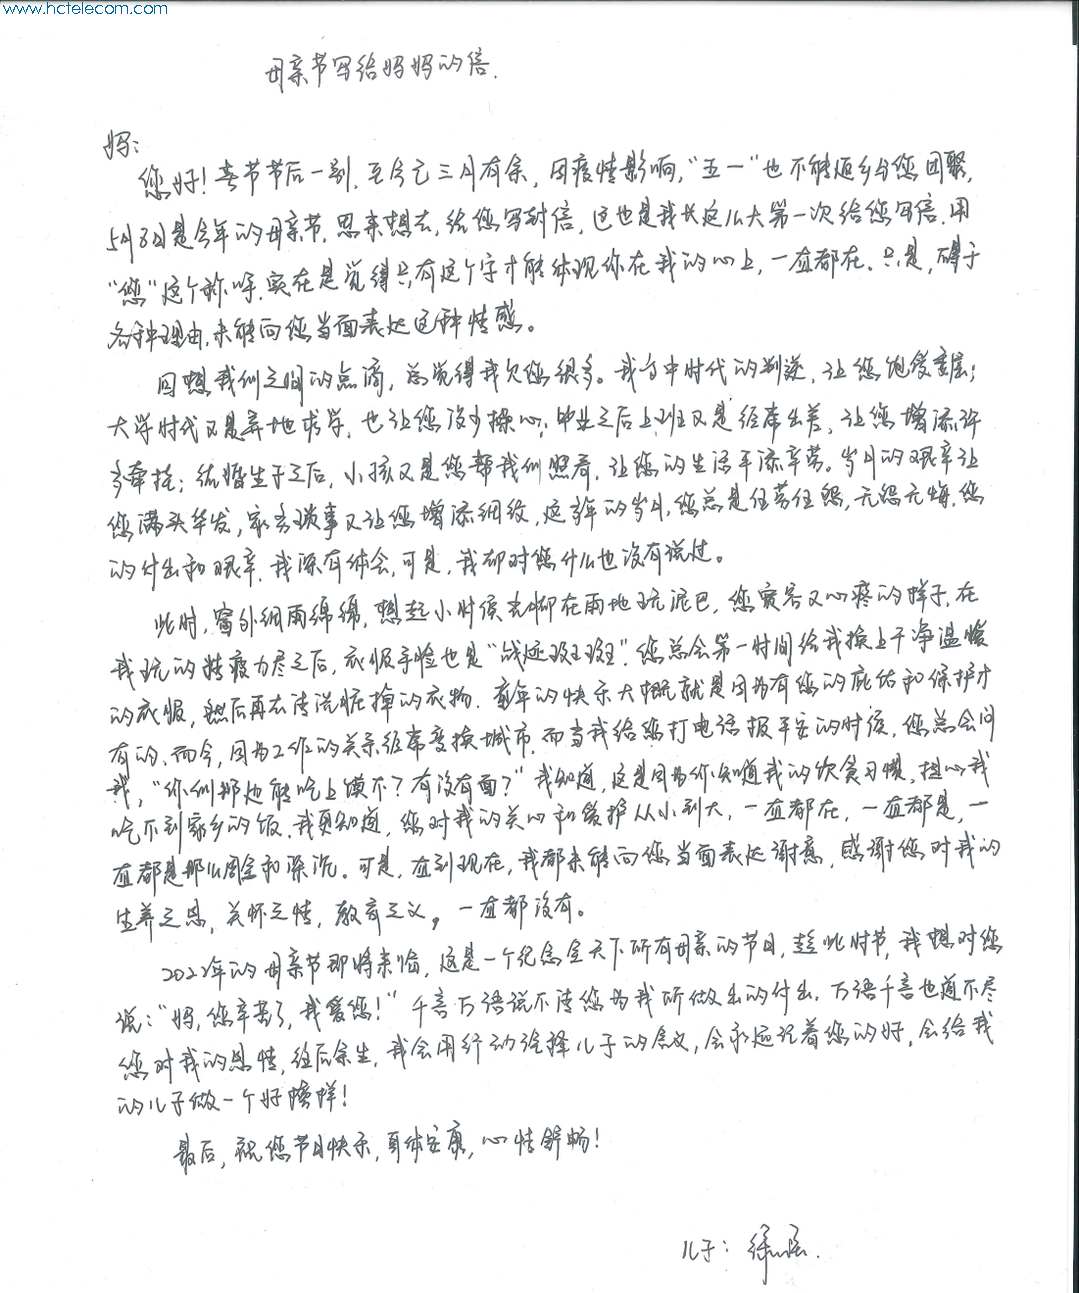 www.hctelecom.com
母亲节写给妈妈的信.
妈:
您好!春节节后一别,至今已三月有余,因疫情影响,"五一"也不能返乡与您团聚,
5月8日是今年的母亲节,思来想去,给您写封信,这也是我长这么大第一次给您写信.用
"您"这个称呼,实在是觉得只有这个字才能体现你在我的心上,一直都在。只是,碍于
各种理由,未能向您当面表达这种情感。
回想我们之间的点滴,总觉得我欠您很多。我高中时代的叛逆,让您饱受委屈;
大学时代又是异地求学,也让您没少操心;毕业之后上班又是经常出差,让您增添许
多牵挂;结婚生子之后,小孩又是您帮我们照看,让您的生活平添辛劳。岁月的艰辛让
您满头华发,家务琐事又让您增添细纹,这多年的岁月,您总是任劳任怨,无怨无悔,您
的付出和艰辛,我深有体会,可是,我却对您什么也没有说过。
此时,窗外细雨绵绵,想起小时候去柳在雨地玩泥巴,您宽容又心疼的样子,在
我玩的精疲力尽之后,衣服手脸也是"战迹斑斑",您总会第一时间给我换上干净温暖
的衣服,然后再去清洗脏掉的衣物.童年的快乐大概就是因为有您的庇佑和保护才
有的.而今,因为工作的关系经常变换城市,而当我给您打电话报平安的时候,您总会问
我,"你们那边能吃上馍不?有没有面?"我知道,这是因为你知道我的饮食习惯,担心我
吃不到家乡的饭,我更知道,您对我的关心和爱护从小到大,一直都在,一直都是,一
直都是那么周全和深沉。可是,直到现在,我都未能向您当面表达谢意,感谢您对我的
生养之恩,关怀之情,教育之义,一直都没有。
2022年的母亲节即将来临,这是一个纪念全天下所有母亲的节日,趁此时节,我想对您
说:"妈,您辛苦了,我爱您!"千言万语说不清您为我所做出的付出,万语千言也道不尽
您对我的恩情,往后余生,我会用行动诠释儿子的含义,会永远记着您的好,会给我
的儿子做一个好榜样!
最后,祝您节日快乐,身体安康,心情舒畅!
儿子:徐